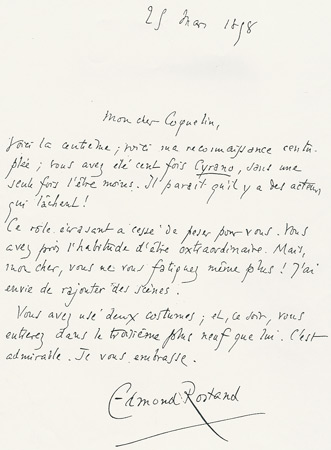 25 mars 1898
Mon cher Coquelin,
Voici la centième ; voici ma reconnaissance centu-
plée ; vous avez été cent fois Cyrano, sans une
seule fois l'être moins. Il paraît qu'il y a des acteurs
qui lâchent !
Ce rôle écrasant a cessé de peser pour vous. Vous
avez pris l'habitude d'être extraordinaire. Mais,
mon cher, vous ne vous fatiguez même plus ! J'ai
envie de rajouter des scènes.
Vous avez usé deux costumes ; et, ce soir, vous
entrerez dans le troisième plus neuf que lui. C'est
admirable. Je vous embrasse.
Edmond Rostand